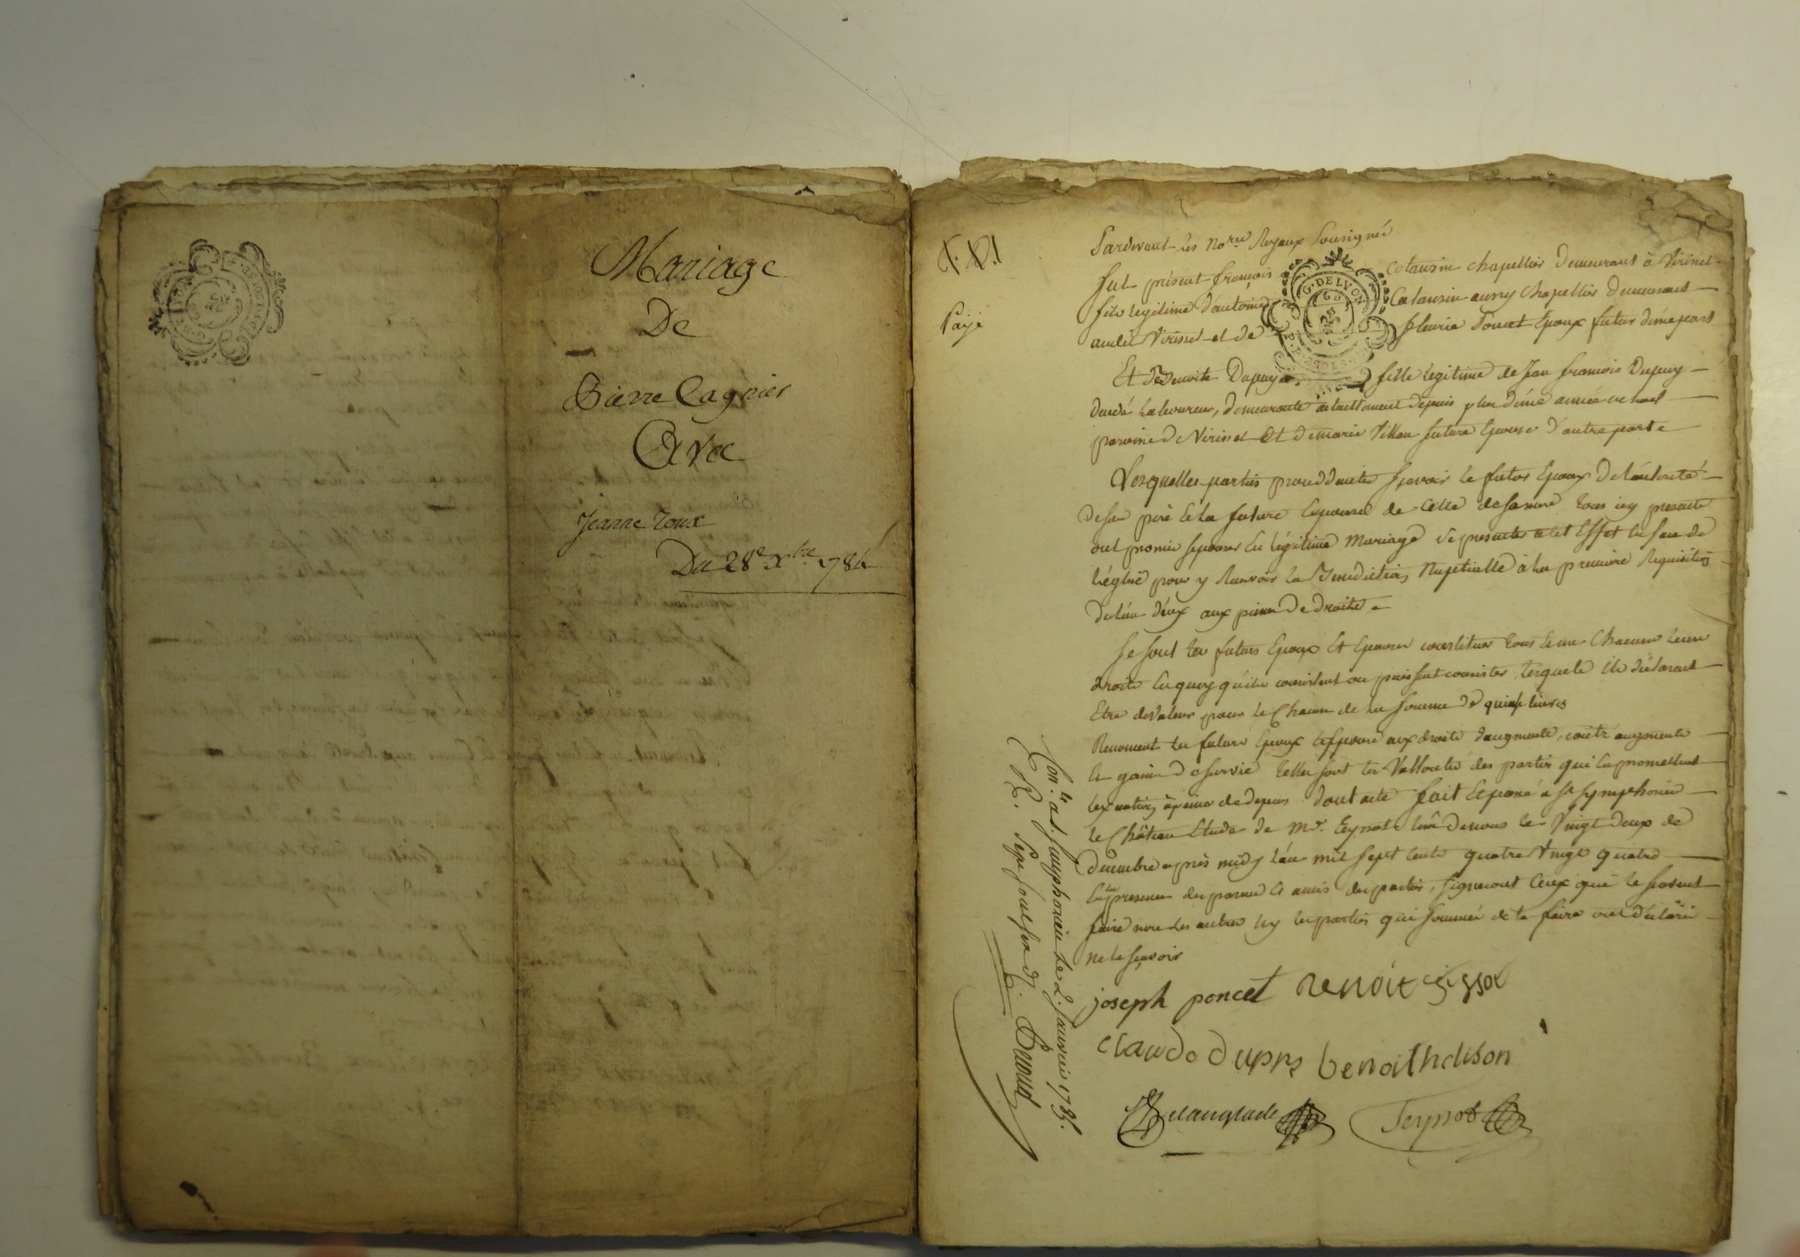 Mariage
De
Pierre Cagnier
Avec
Jeanne Roux
Du 28e Xbre 1784
Payé
G. DE LYON
Pardevant les Nores Royaux Soussignés
fut présent françois Catausin chapellier demeurant à Virinel
fils légitime d'antoine Catausin aussy chapellier demeurant
audit Virinel et de fleurie Poncet Epoux futur d'une part
Et Benoite Dupuy fille légitime de Jean francois Dupuy
laboureur, demeurante actuellement depuis plus d'une année
paroisse de Virinel Et de marie Villon future Epouse d'autre part
Lesquelles parties procédantes sçavoir le futur Epoux de l'autorité
de son père Et la future Epouse de celle de sa mère tous icy présents
ont promis s'epouser En légitime Mariage se présenter a cet Effet En face de
l'église pour y Recevoir la Bénédiction Nuptialle à la première Requisition
de l'un d'eux aux peines de droits
Se sont les futurs Epoux Et Epouse constitués tous Et un Chacun leurs
droits En quoy qu'ils consistent ou puissent consister, lesquels ils déclarent
Etre de valeur pour le Chacun de la somme de quinze livres
Renoncent les futurs Epoux Et Epouse aux droits d'augments, contre augments
Et gains de survie telles sont les Vollontés des parties qui En promettent
Exécution à peine de depens Dont acte fait Et passé à St Symphorien
le Château Etude de Me. Teynot l'un de nous le Vingt Deux de
décembre après midy l'an mil sept cents quatre Vingt quatre
En présence des parens Et amis des parties, signeront Ceux qui le savent
faire non les autres ny les parties qui sommés de le faire ont déclaré
ne le sçavoir
joseph poncet Renoit
claude dupre benoit
Teynot
Con.lé a St. Simphorien le 2. Janvier 1785.